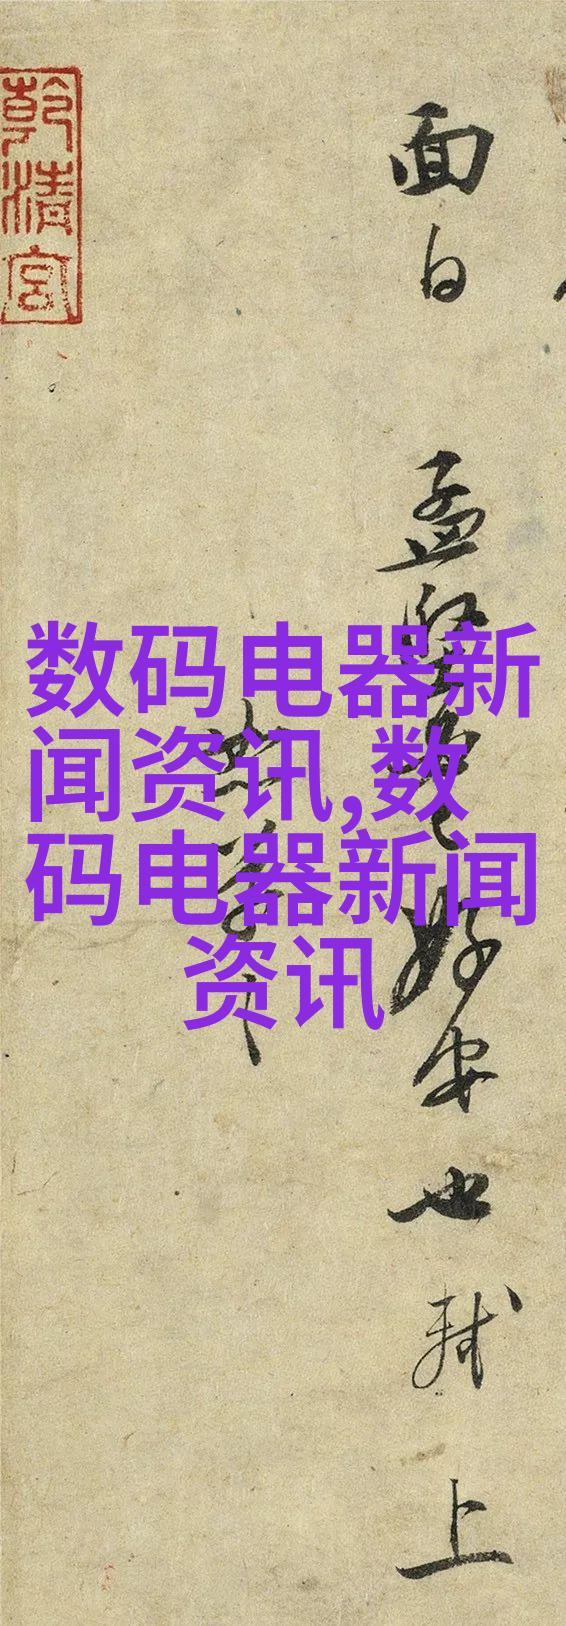 数码电器新
闻资讯,数
码电器新闻
资讯
面白 孟堅 好安也 軾 上
乾清宮